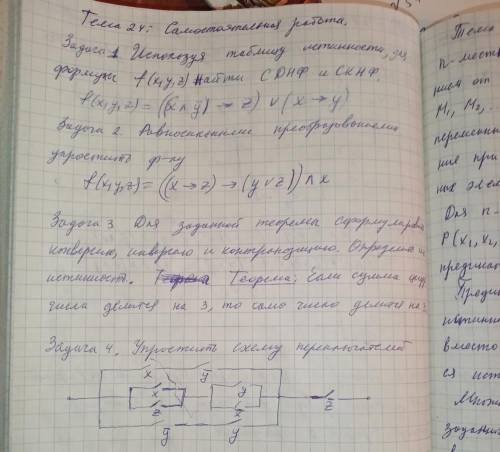 Тема 24: Самостоятельная работа.
Задача 1 Используя таблицу истинности, для
формулы f(x,y,z) найти СДНФ и СКНФ.
f(x,y,z) = ((x ∧ ȳ) → z) ∨ (x → y)
Задача 2 Равносильными преобразованиями
упростить ф-лу
f(x,y,z) = ((x → z) → (y ∨ z)) ∧ x
Задача 3 Для заданной теоремы сформулировать
и контрапозицию. Определить
истинность. Теорема: Если сумма цифр
числа делится на 3, то само число делится на 3.
Задача 4. Упростить схему переключателей
x ȳ
x y
z x̄ z̄
ȳ y
Тема
n-мест
нием от
M₁, M₂
переменны
ния при
ных элем
Для n-
P(x₁, x₂,
предикат
Преди
истинн
вместо
ся ист
Множ
заданно